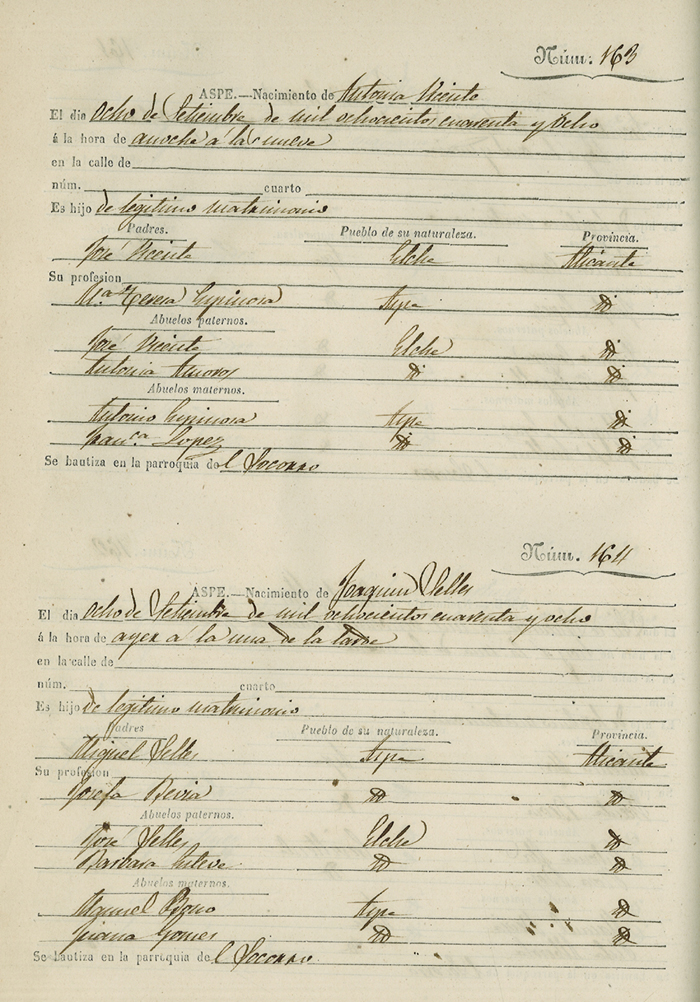 Núm. 163
ASPE.—Nacimiento de Antonia Vicente
El dia ocho de Setiembre de mil ochocientos cuarenta y ocho
á la hora de anoche á la nueve
en la calle de
núm. cuarto
Es hijo de legitimo matrimonio
Padres. Pueblo de su naturaleza. Provincia.
José Vicente Elche Alicante
Su profesion
Mª Teresa Espinosa Aspe
Abuelos paternos.
José Vicente Elche
Antonia Amoros
Abuelos maternos.
Antonio Espinosa Aspe
Franca Lopez
Se bautiza en la parroquia del Socorro
Núm. 164
ASPE.—Nacimiento de Joaquin Selles
El dia ocho de Setiembre de mil ochocientos cuarenta y ocho
á la hora de ayer á la una de la tarde
en la calle de
núm. cuarto
Es hijo de legitimo matrimonio
Padres Pueblo de su naturaleza. Provincia.
Miguel Selles Aspe Alicante
Su profesion
Josefa
Abuelos paternos.
José Selles Elche
Barbara Esteve
Abuelos maternos.
Aspe
Juana Gomes
Se bautiza en la parroquia de l Socorro